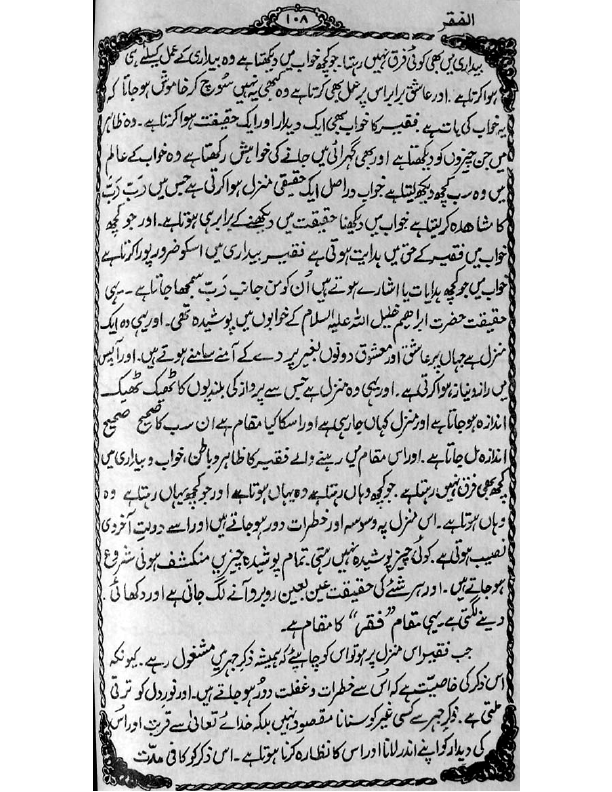 الفقر
۱۰۸
بیداری میں بھی کوئی فرق نہیں رہتا۔ جو کچھ خواب میں دیکھتا ہے وہ بیداری کے عمل کیلئے ہی
ہوا کرتا ہے۔ اور عاشق برابر اس پر عمل بھی کرتا ہے وہ کبھی یہ نہیں سوچ کر خاموش ہو جاتا کہ
یہ خواب کی بات ہے فقیر کا خواب بھی ایک دیدار اور ایک حقیقت ہوا کرتا ہے۔ وہ ظاہر
میں جن چیزوں کو دیکھتا ہے اور بھی گہرائی میں جانے کی خواہش رکھتا ہے وہ خواب کے عالم
میں وہ سب کچھ دیکھ لیتا ہے خواب دراصل ایک حقیقی منزل ہوا کرتی ہے جس میں ربّ ربّ
کا مشاہدہ کر لیتا ہے خواب میں دیکھنا حقیقت میں دیکھنے کے برابر ہی ہوتا ہے۔ اور جو کچھ
خواب میں فقیر کے حق میں ہدایت ہوتی ہے فقیر بیداری میں اسکو ضرور پورا کرتا ہے
خواب میں جو کچھ ہدایات یا اشارے ہوتے ہیں اُن کو من جانب رَبّ سمجھا جاتا ہے۔ یہی
حقیقت حضرت ابراھیم خلیل اللہ علیہ السلام کے خوابوں میں پوشیدہ تھی۔ اور یہی وہ ایک
منزل ہے جہاں پر عاشق اور معشوق دونوں بغیر پردے کے آمنے سامنے ہوتے ہیں۔ اور آپس
میں راز و نیاز ہوا کرتی ہے۔ اور یہی وہ منزل ہے جس سے پرواز کی بلندیوں کا ٹھیک ٹھیک
اندازہ ہو جاتا ہے اور منزل کہاں جا رہی ہے اور اسکا کیا مقام ہے ان سب کا صحیح صحیح
اندازہ مل جاتا ہے۔ اور اس مقام میں رہنے والے فقیر کا ظاہر و باطن، خواب و بیداری میں
کچھ بھی فرق نہیں رہتا ہے۔ جو کچھ وہاں رہتا ہے وہ یہاں ہوتا ہے اور جو کچھ یہاں رہتا ہے وہ
وہاں ہوتا ہے۔ اس منزل پہ وسوسہ اور خطرات دور ہو جاتے ہیں اور اسے دولت آخروی
نصیب ہوتی ہے۔ کوئی چیز پوشیدہ نہیں رہتی۔ تمام پوشیدہ چیزیں منکشف ہونی شروع
ہو جاتے ہیں۔ اور ہر شئے کی حقیقت عین بعین روبرو آنے لگ جاتی ہے اور دکھائی
دینے لگتی ہے۔ یہی مقام "فقر" کا مقام ہے۔
جب فقیر اس منزل پر ہو تو اس کو چاہیئے کہ ہمیشہ ذکر جہر میں مشغول رہے۔ کیونکہ
اس ذکر کی خاصیت ہے کہ اُس سے خطرات و غفلت دور ہو جاتے ہیں۔ اور نورِ دل کو ترقی
ملتی ہے۔ ذکر جہر سے کسی غیر کو سنانا مقصود نہیں بلکہ خدائے تعالیٰ سے قربت اور اُس
کی دیدار کو اپنے اندر لانا اور اس کا نظارہ کرنا ہوتا ہے۔ اس ذکر کو کافی مدّت